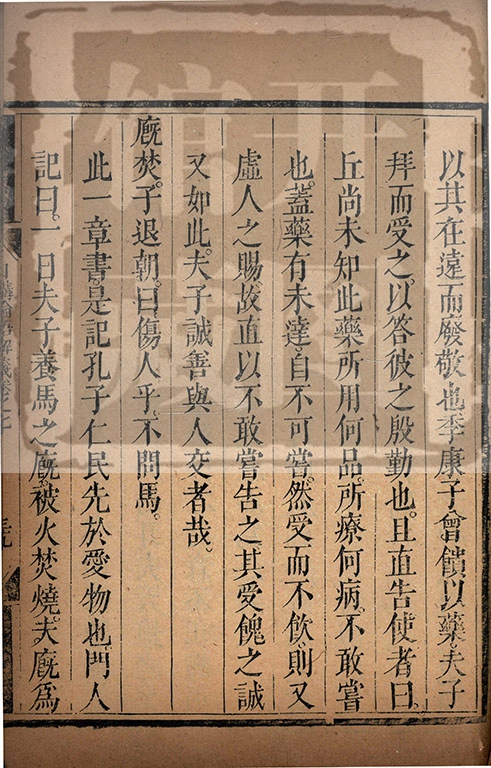 以其在遠而廢敬也季康子曾饋以藥。夫子
拜而受之。以答彼之殷勤也。且直告使者曰。
丘尚未知此藥所用何品。所療何病。不敢嘗
也。蓋藥有未達。自不可嘗。然受而不飲。則又
虛人之賜。故直以不敢嘗告之。其受餽之誠
又如此。夫子誠善與人交者哉。
廐焚。子退朝。曰。傷人乎。不問馬。
此一章書。是記孔子仁民先於愛物也。門人
記曰。一日夫子養馬之廐。被火焚燒。夫廐為